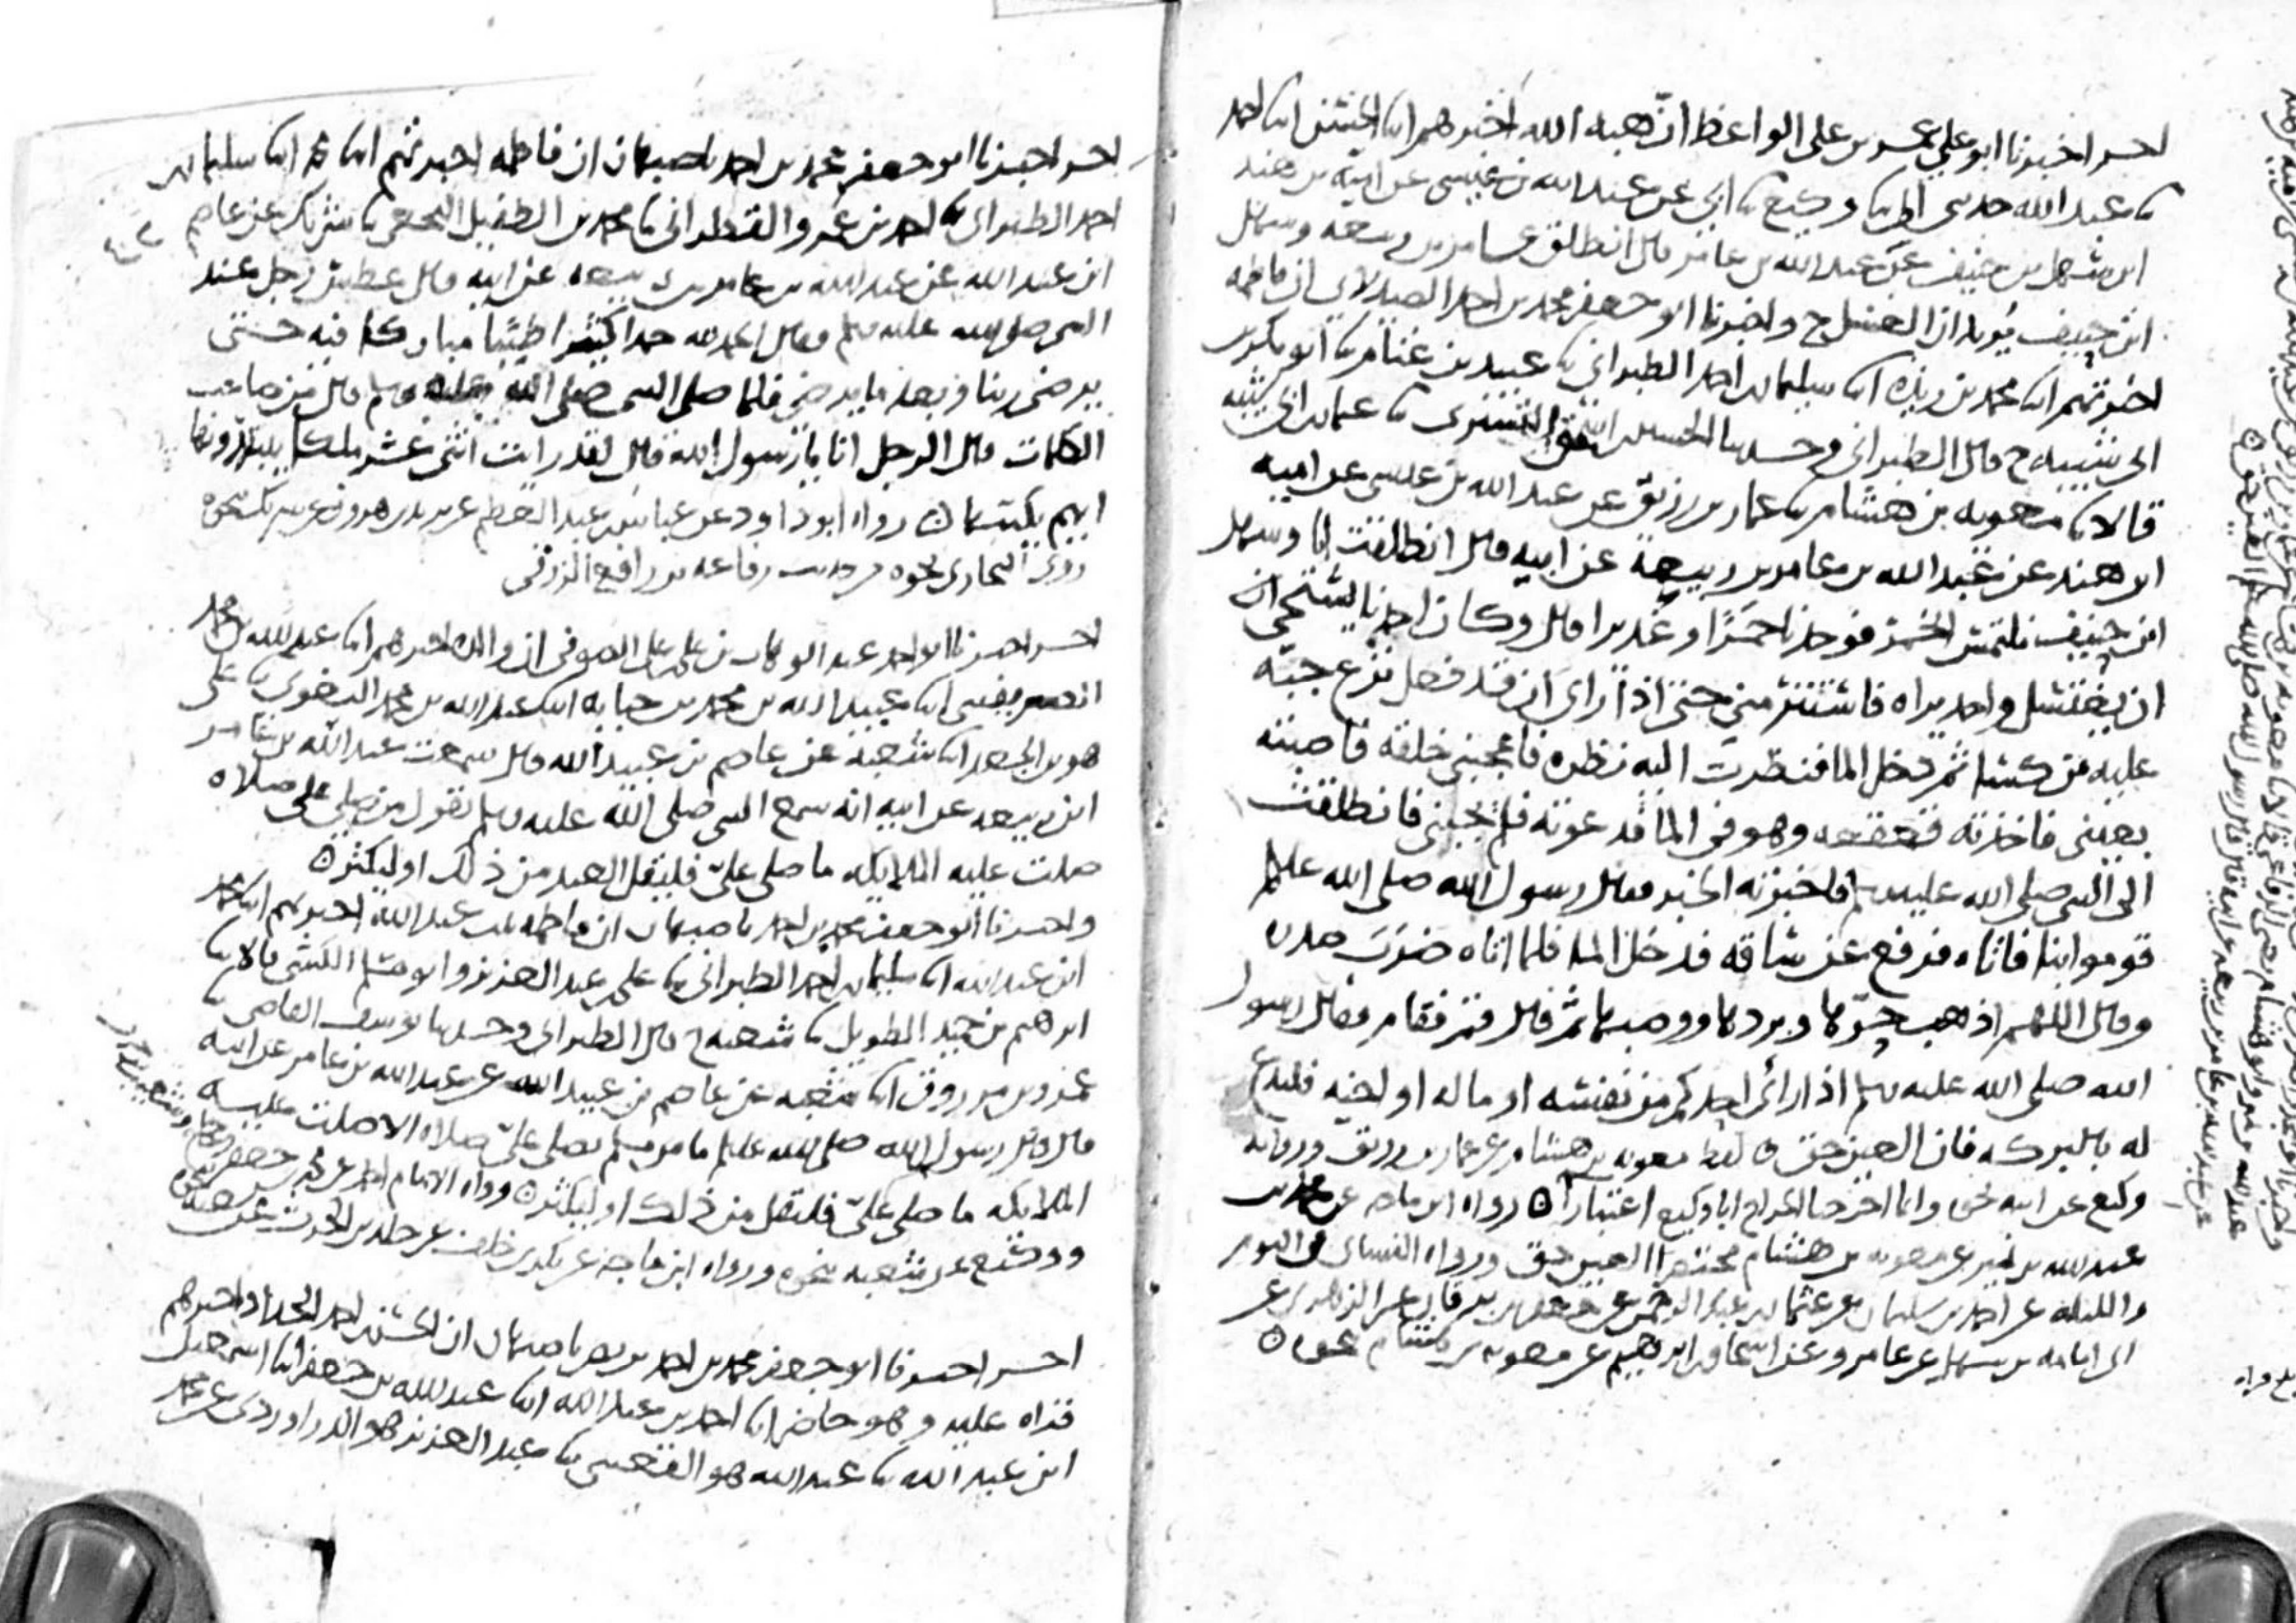 اخر اخبرنا ابو علي عمر بن علي الواعظ ان هبة الله اخبرهم ابنا الحسن ابنا احمد
نا عبد الله حدثني ابي نا وكيع نا ابي عن عبد الله بن عيسى عن امية بن هند
ابن سهل بن حنيف عن عبد الله بن عامر قال انطلق عامر بن ربيعه وسهل
ابن حنيف يريدان الغسل ح واخبرنا ابو جعفر محمد بن احمد الصيدلاني ان فاطمه
اخبرتهم ابنا محمد بن ريذه ابنا سليمان بن احمد الطبراني نا عبيد بن غنام نا ابو بكر بن
ابي شيبه ح قال الطبراني وحدثنا الحسين بن اسحق التستري نا عثمان بن ابي شيبه
قالا نا معويه بن هشام نا عمار بن رزيق عن عبد الله بن عيسى عن اميه
ابن هند عن عبد الله بن عامر بن ربيعة عن ابيه قال انطلقت انا وسهل
ابن حنيف نلتمس الخمر فوجدنا خمرا او غديرا قال وكان احدنا يستحي ان
ان يغتسل واحد يراه فاستتر مني حتى اذا راى ان قد فعل نزع جبة
عليه من كسا ثم دخل الما فنظرت اليه نظره فاعجبني خلقه فاصبته
بعيني فاخذته قعقعه وهو في الما فدعوته فلم يجبني فانطلقت
الى النبي صلى الله عليه وسلم فاخبرته الخبر فقال رسول الله صلى الله عليه وسلم
قوموا بنا فاتاه فرفع عن ساقه فدخل الما فلما اتاه ضرب صدره
وقال اللهم اذهب حرها وبردها ووصبها ثم قال قم فقام فقال رسول
الله صلى الله عليه وسلم اذا راى احدكم من نفسه او ماله او اخيه فليدع
له بالبركه فان العين حق لفظ معويه بن هشام عن عمار بن رزيق وروايه
وكيع عن ابيه نحوه وانما اخرجنا الجراح ابا وكيع اعتبارا رواه ابن ماجه عن محمد بن
عبد الله بن نمير عن معويه بن هشام مختصرا العين حق ورواه النسائي في اليوم
والليله عن احمد بن سليمان عن عثمان بن عبد الرحمن عن جعفر بن برقان عن الزهري عن
ابي امامه بن سهل عن عامر وعن اسحاق بن ابرهيم عن معويه بن هشام نحوه
اخر اخبرنا ابو جعفر محمد بن احمد باصبهان ان فاطمه اخبرتهم ابنا محمد ابنا سليمان بن
احمد الطبراني نا احمد بن عمرو القطراني نا محمد بن الطفيل النخعي نا شريك عن عاصم
ابن عبيد الله عن عبد الله بن عامر بن ربيعه عن ابيه قال عطس رجل عند
النبي صلى الله عليه وسلم فقال الحمد لله حمدا كثيرا طيبا مباركا فيه حتى
يرضى ربنا وبعد ما يرضى فلما صلى النبي صلى الله عليه وسلم قال من صاحب
الكلمات قال الرجل انا يا رسول الله قال لقد رايت اثنى عشر ملكا يبتدرونها
ايهم يكتبها رواه ابو داود عن عباس بن عبد العظيم عن يزيد بن هرون عن شريك نحوه
روى البخاري نحوه من حديث رفاعه بن رافع الزرقي
اخر اخبرنا ابو احمد عبد الوهاب بن علي بن علي الصوفي ان والده اخبرهم ابنا عبد الله بن محمد
الصريفيني ابنا عبيد الله بن محمد بن حبابه ابنا عبد الله بن محمد البغوي نا علي
هو بن الجعد ابنا شعبة عن عاصم بن عبيد الله قال سمعت عبد الله بن عامر
ابن ربيعه عن ابيه انه سمع النبي صلى الله عليه وسلم يقول من صلى علي صلاه
صلت عليه الملايكه ما صلى علي فليقل العبد من ذلك او ليكثر
واخبرنا ابو جعفر محمد بن احمد باصبهان ان فاطمه بنت عبد الله اخبرتهم ابنا محمد
ابن عبد الله ابنا سليمان بن احمد الطبراني نا علي بن عبد العزيز وابو مسلم الكشي قالا نا
ابرهيم بن حميد الطويل نا شعبه ح قال الطبراني وحدثنا يوسف القاضي نا
عمرو بن مرزوق ابنا شعبه عن عاصم بن عبيد الله عن عبد الله بن عامر عن ابيه
قال قال رسول الله صلى الله عليه وسلم ما من مسلم يصلي علي صلاه الا صلت عليه
الملايكه ما صلى علي فليقل من ذلك او ليكثر رواه الامام احمد عن محمد بن جعفر
ووكيع عن شعبه بنحوه ورواه ابن ماجه عن بكر بن خلف عن خالد بن الحرث عن شعبه نحوه
اخر اخبرنا ابو جعفر محمد بن احمد بن نصر باصبهان ان الحسن بن احمد الحداد اخبرهم
قراه عليه وهو حاضر ابنا احمد بن عبد الله ابنا عبد الله بن جعفر ابنا اسمعيل
ابن عبد الله نا عبد الله هو القعنبي نا عبد العزيز هو الدراوردي عن محمد